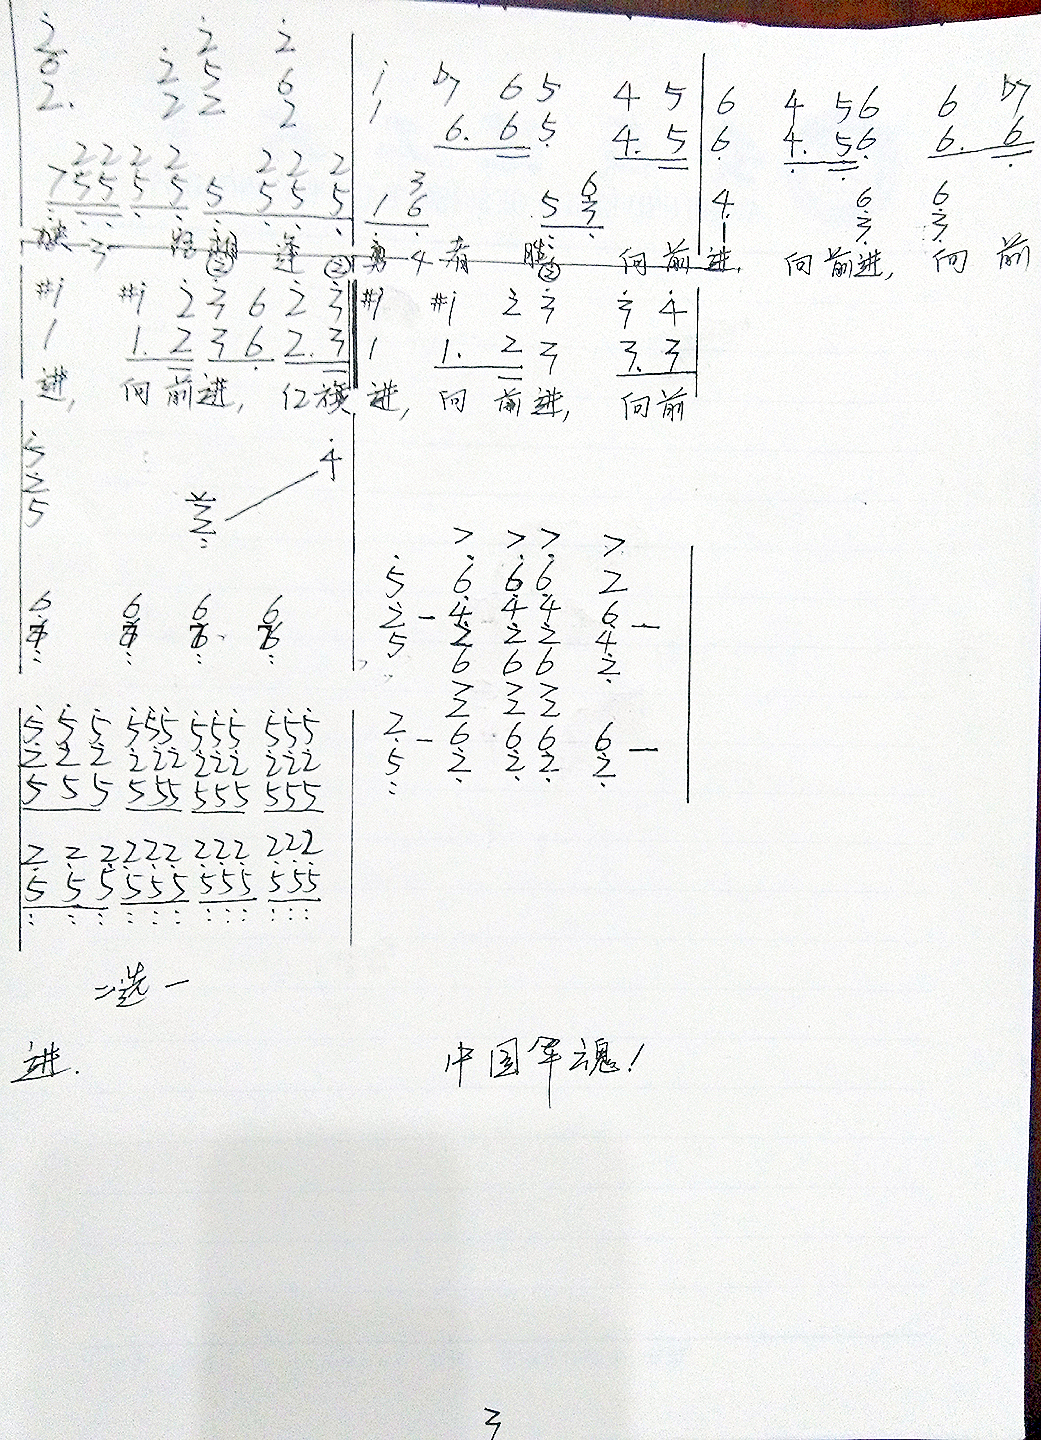 2̇ 2̇ 2̇
6 2̇ 5 6
2. 2 2 2
i ♭7 6 5 4 5 6 4 5 6 6 ♭7
1 6. 6 5 4. 5 6 4. 5 6 6. 6
2 2 2 2 2 2 2
7 5 5 5 5 5 5 5 5
1 6 5
4 6 6
路 相 逢 ② 勇 者 胜 ② 向 前 进, 向 前 进, 向 前
#i #i 2̇ 3̇ 6 2̇ 3̇ #i #i 2̇ 3̇ 3̇ 4̇
1 1. 2 3 6 2. 3 1 1. 2 3 3. 3
进, 向 前 进, 红 旗 进, 向 前 进, 向 前
5̇ 4̇
2̇
5
> > > >
5̇ 6̇ 6̇ 6̇ 2
2̇ – 4 4 4 6 –
5 2 2 2 4
6 6 6 2
6 6 6 6
2 – 6 6 6 6 –
5 2 2 2 2
5̇ 5̇ 5̇ 5̇5̇5̇ 5̇5̇5̇ 5̇5̇5̇
2̇ 2̇ 2̇ 2̇2̇2̇ 2̇2̇2̇ 2̇2̇2̇
5 5 5 555 555 555
2 2 2 222 222 222
5 5 5 555 555 555
二选一
进. 中国军魂!
3